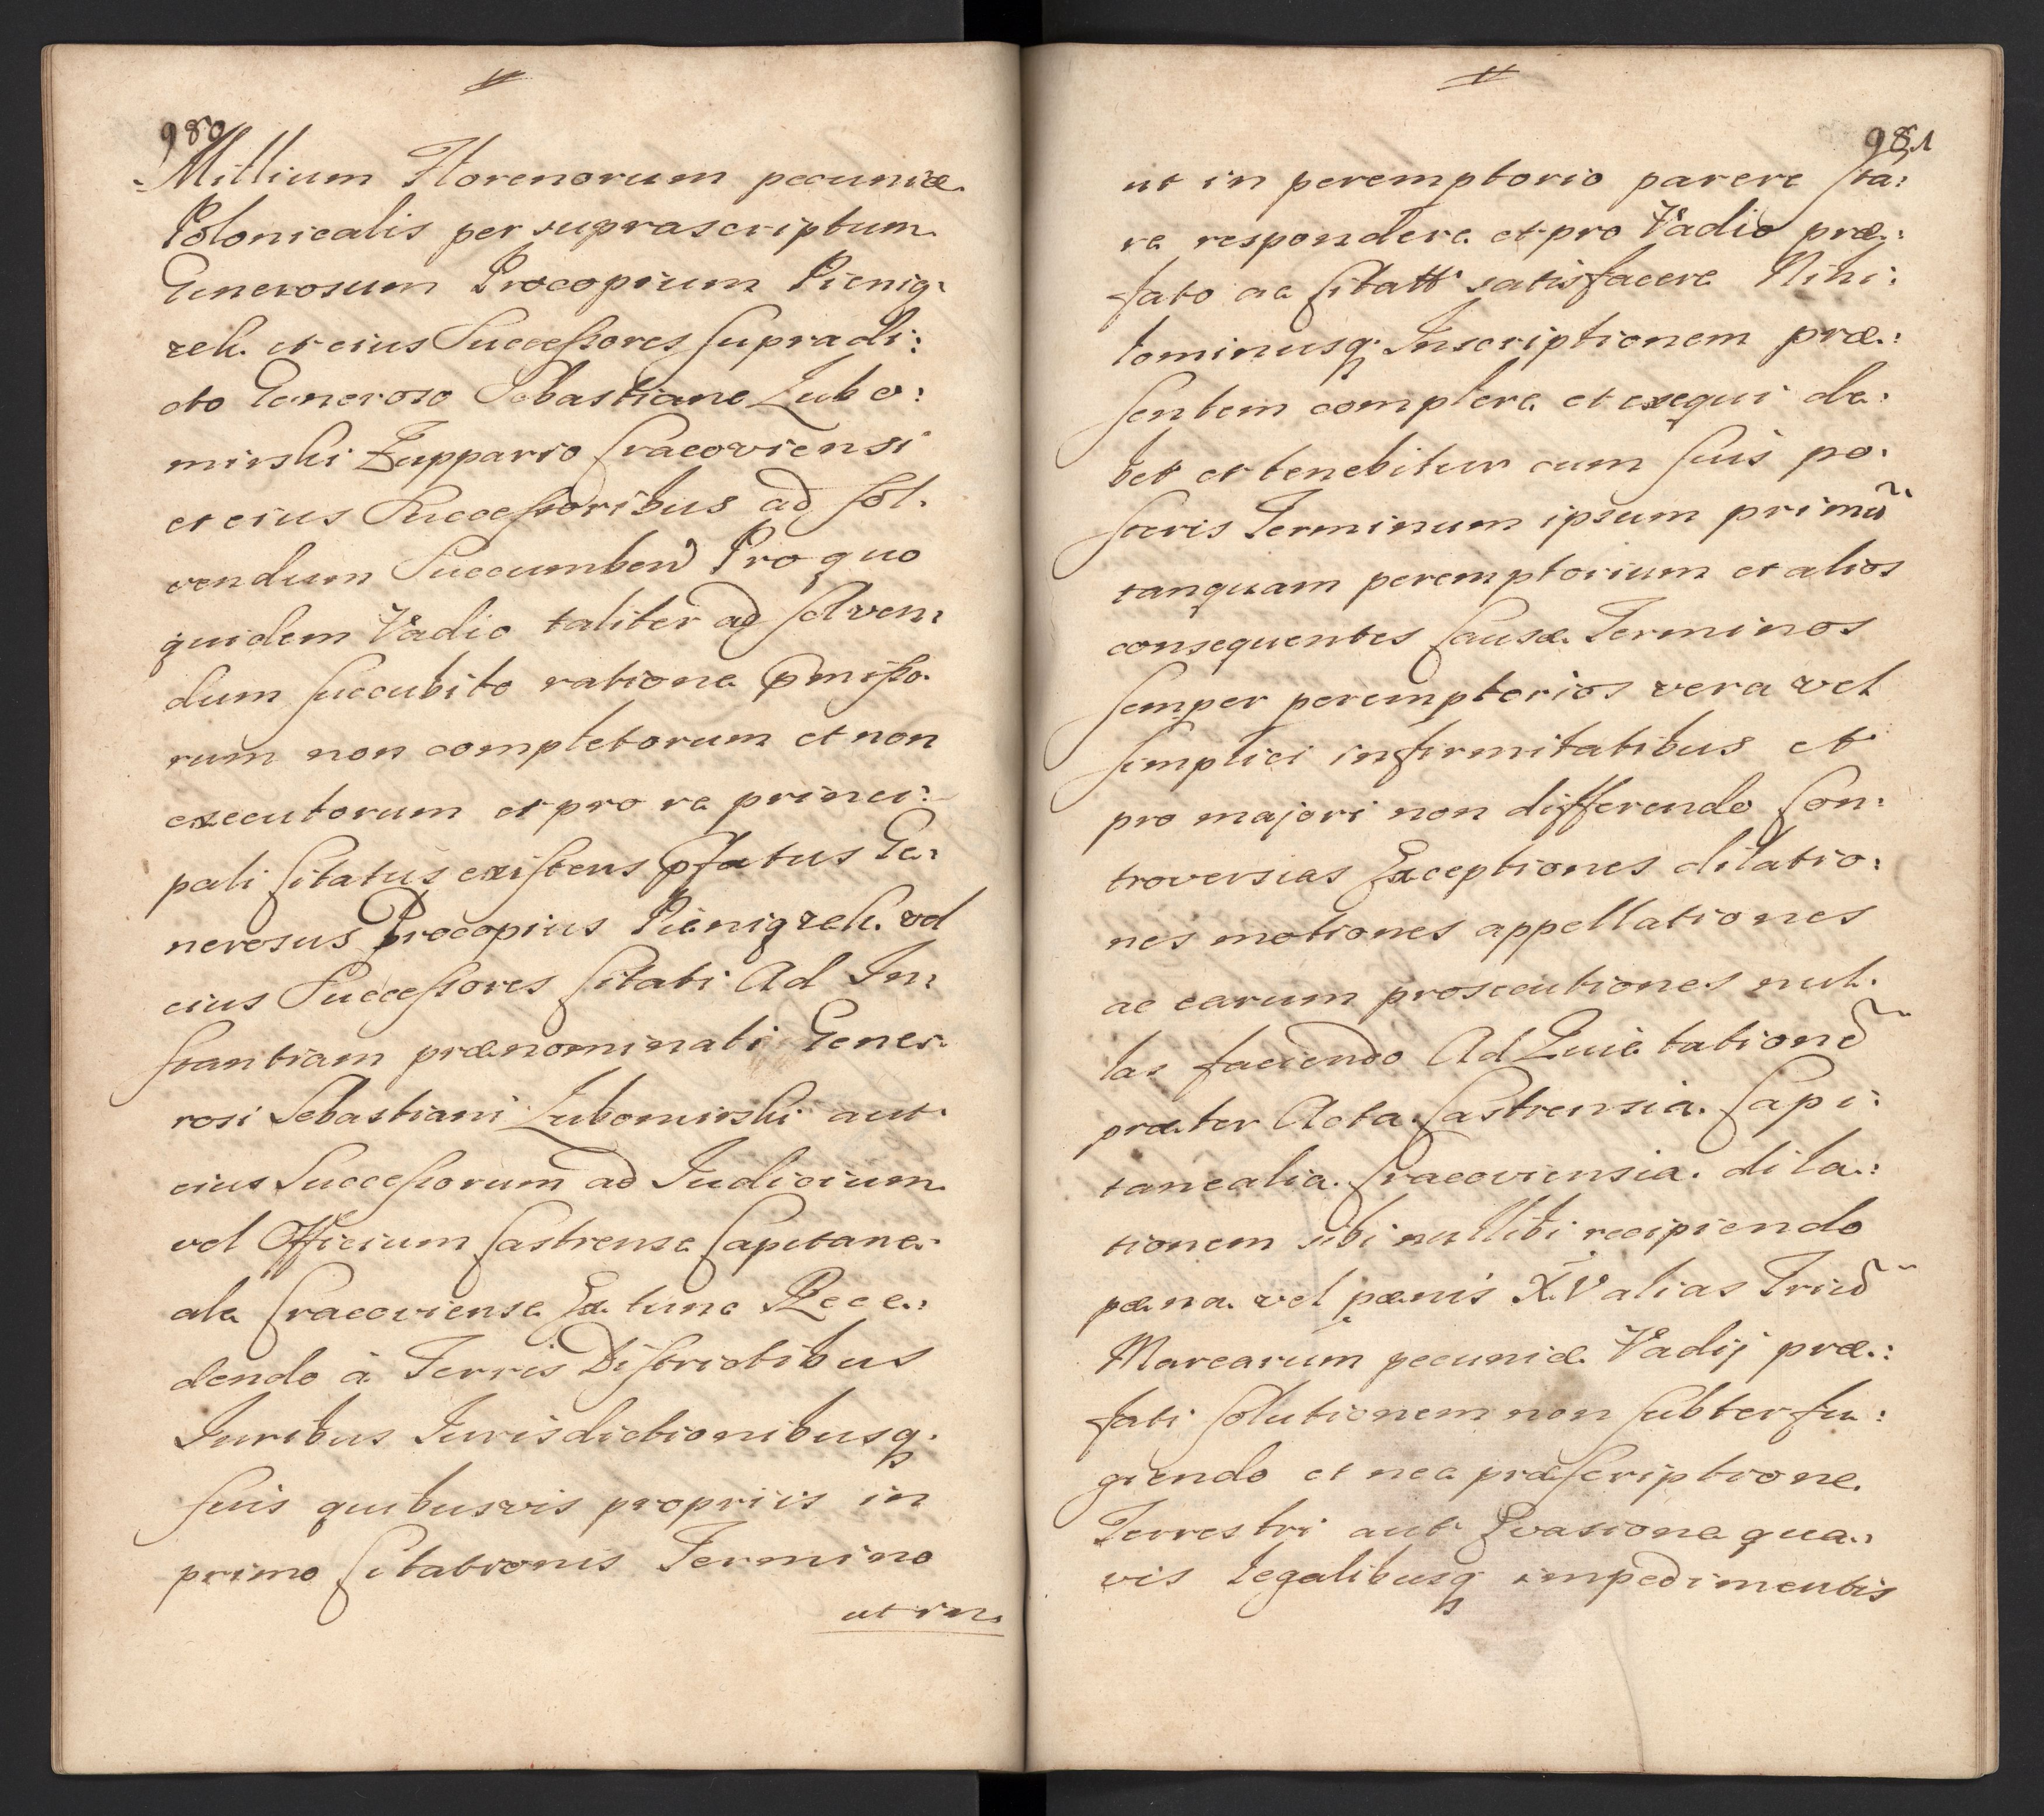 980
-Millium Florenorum pecuniæ
Polonicalis per suprascriptum
Generosum Procopium Pieniq-
zek et eius Successores supradi:
cto Generoso Sebastiano Lubo:
mirski Zuppario Cracoviensi
et eius Successoribus ad sol-
vendum Succumben Pro quo
quidem Vadio taliter ad solven-
dum succubito ratione pmisso-
rum non completorum et non
executorum et pro re princi:
pali Citatus existens pfatus Ge-
nerosus Procopius Pieniqzek vel
eius Successores Citati Ad In-
stantiam prænominati Gene-
rosi Sebastiani Lubomirski aut
eius Successorum ad Iudicium
vel Officium Castrense Capitane-
ale Cracoviense Ex tunc Rece-
dendo à Terris Districtibus
Iuribus Iurisdictionibusq
suis quibusvis propriis in
primo Citationis Termino
ut in
981
ut in peremptorio parere sta:
re respondere et pro Vadio præ:
fato ac Citatt satisfacere Nihi:
lominusq Inscriptionem præ:
sentem complere et exequi de:
bet et tenebitur cum suis po-
steris Terminum ipsum primũ
tanquam peremptorium et alios
consequentes Causæ Terminos
semper peremptorios vera vel
simplici infirmitatibus et
pro majori non differendo Con:
troversias Exceptiones dilatio:
nes motiones appellationes
ac earum prosecutiones nul-
las faciendo Ad Quietationẽ
præter Acta Castrensia Capi:
tanealia Cracoviensia dila:
tionem sibi nullibi recipiendo
pæna vel pænis XV alias Triũ
Marcarum pecuniæ Vadij præ:
fati solutionem non subterfu:
giendo et nec præscriptione
Terrestri aut Evasione qua-
vis legalibusq impedimentis